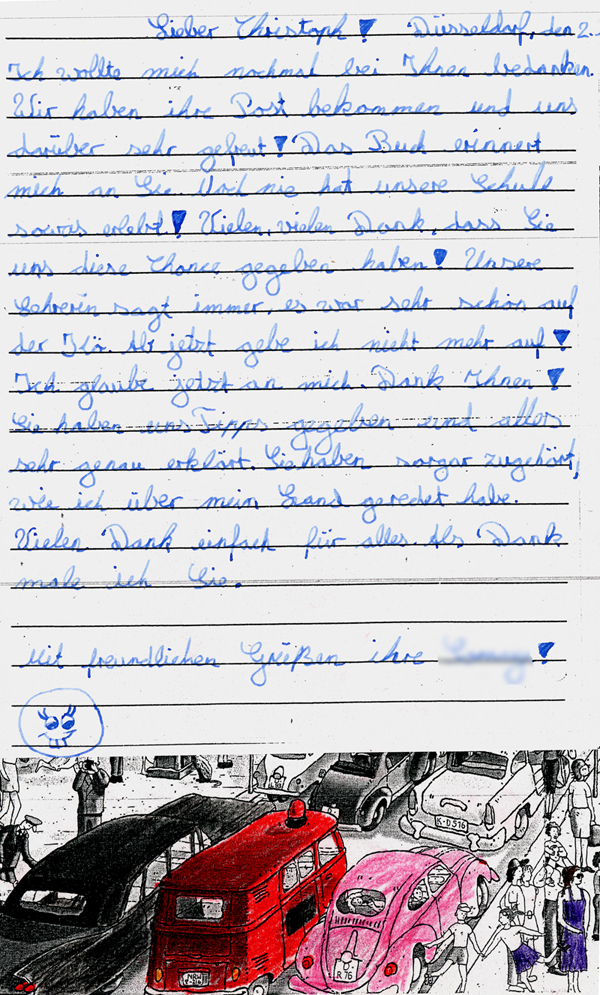 Lieber Christoph! Düsseldorf, den 2.
Ich wollte mich nochmal bei Ihnen bedanken.
Wir haben ihre Post bekommen und uns
darüber sehr gefreut! Das Buch erinnert
mich an Sie. Noch nie hat unsere Schule
sowas erlebt! Vielen, vielen Dank, dass Sie
uns diese Chance gegeben haben! Unsere
Lehrerin sagt immer, es war sehr schön auf
der Kö. Ab jetzt gebe ich nicht mehr auf!
Ich glaube jetzt an mich. Dank Ihnen!
Sie haben uns Tipps gegeben und alles
sehr genau erklärt. Sie haben sorgar zugehört,
wie ich über mein Land geredet habe.
Vielen Dank einfach für alles. Als Dank
male ich Sie.
Mit freundlichen Grüßen ihre !
K-D516
D-
R 76